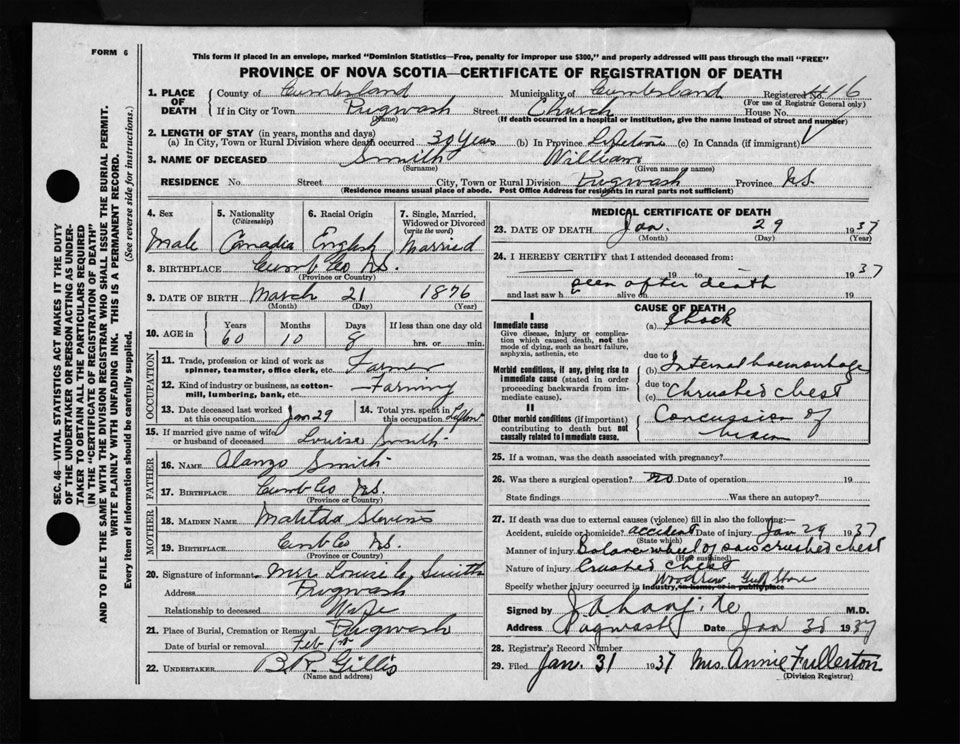 FORM 6
This form if placed in an envelope, marked "Dominion Statistics—Free, penalty for improper use $300," and properly addressed will pass through the mail "FREE"
PROVINCE OF NOVA SCOTIA—CERTIFICATE OF REGISTRATION OF DEATH
SEC. 46—VITAL STATISTICS ACT MAKES IT THE DUTY
OF THE UNDERTAKER OR PERSON ACTING AS UNDER-
TAKER TO OBTAIN ALL THE PARTICULARS REQUIRED
IN THE "CERTIFICATE OF REGISTRATION OF DEATH"
AND TO FILE THE SAME WITH THE DIVISION REGISTRAR WHO SHALL ISSUE THE BURIAL PERMIT.
WRITE PLAINLY WITH UNFADING INK. THIS IS A PERMANENT RECORD.
Every item of information should be carefully supplied. (See reverse side for instructions.)
1. PLACE OF DEATH
County of Cumberland Municipality of Cumberland Registered No. 16
(For use of Registrar General only)
If in City or Town Pugwash Street Church House No.
(Name) (If death occurred in a hospital or institution, give the name instead of street and number)
2. LENGTH OF STAY (in years, months and days)
(a) In City, Town or Rural Division where death occurred 30 years (b) In Province Lifetime (c) In Canada (if immigrant)
3. NAME OF DECEASED Smith William
(Surname) (Given name or names)
RESIDENCE No. Street City, Town or Rural Division Pugwash Province N.S.
(Residence means usual place of abode. Post Office Address for residents in rural parts not sufficient)
4. Sex 5. Nationality (Citizenship) 6. Racial Origin 7. Single, Married, Widowed or Divorced (write the word)
Male Canadia English Married
8. BIRTHPLACE Cumb Co N.S.
(Province or Country)
9. DATE OF BIRTH March 21 1876
(Month) (Day) (Year)
10. AGE in Years Months Days If less than one day old
60 10 8 hrs. or min.
OCCUPATION
11. Trade, profession or kind of work as spinner, teamster, office clerk, etc. Farmer
12. Kind of industry or business, as cotton-mill, lumbering, bank, etc. Farming
13. Date deceased last worked at this occupation Jan 29 14. Total yrs. spent in this occupation
15. If married give name of wife or husband of deceased Louise Smith
FATHER
16. NAME Alonzo Smith
17. BIRTHPLACE Cumb Co N.S.
(Province or Country)
MOTHER
18. MAIDEN NAME Matilda Stevens
19. BIRTHPLACE Cumb Co N.S.
(Province or Country)
20. Signature of informant Mrs Louise C. Smith
Address Pugwash
Relationship to deceased Wife
21. Place of Burial, Cremation or Removal Pugwash
Date of burial or removal Feb 1st
22. UNDERTAKER B.R. Gillis
(Name and address)
MEDICAL CERTIFICATE OF DEATH
23. DATE OF DEATH Jan. 29 1937
(Month) (Day) (Year)
24. I HEREBY CERTIFY that I attended deceased from:
19 to 1937
seen after death
and last saw h alive on 19
CAUSE OF DEATH
I
Immediate cause (a) Shock
Give disease, injury or complication which caused death, not the mode of dying, such as heart failure, asphyxia, asthenia, etc
due to
Morbid conditions, if any, giving rise to immediate cause (stated in order proceeding backwards from immediate cause).
(b) Internal haemorrhage
due to
(c) Chrushed chest
II
Other morbid conditions (if important) contributing to death but not causally related to immediate cause.
Concussion of brain
25. If a woman, was the death associated with pregnancy?
26. Was there a surgical operation? no Date of operation 19
State findings Was there an autopsy?
27. If death was due to external causes (violence) fill in also the following:
Accident, suicide or homicide? accident Date of injury Jan 29 1937
(State which)
Manner of injury Balance wheel of saw crushed chest
(How sustained)
Nature of injury Crushed chest
Specify whether injury occurred in Industry, in home, or in public place
Signed by M.D.
Address Pugwash Date Jan 1937
28. Registrar's Record Number
29. Filed Jan. 31 1937 Mrs. Annie Fullerton
(Division Registrar)